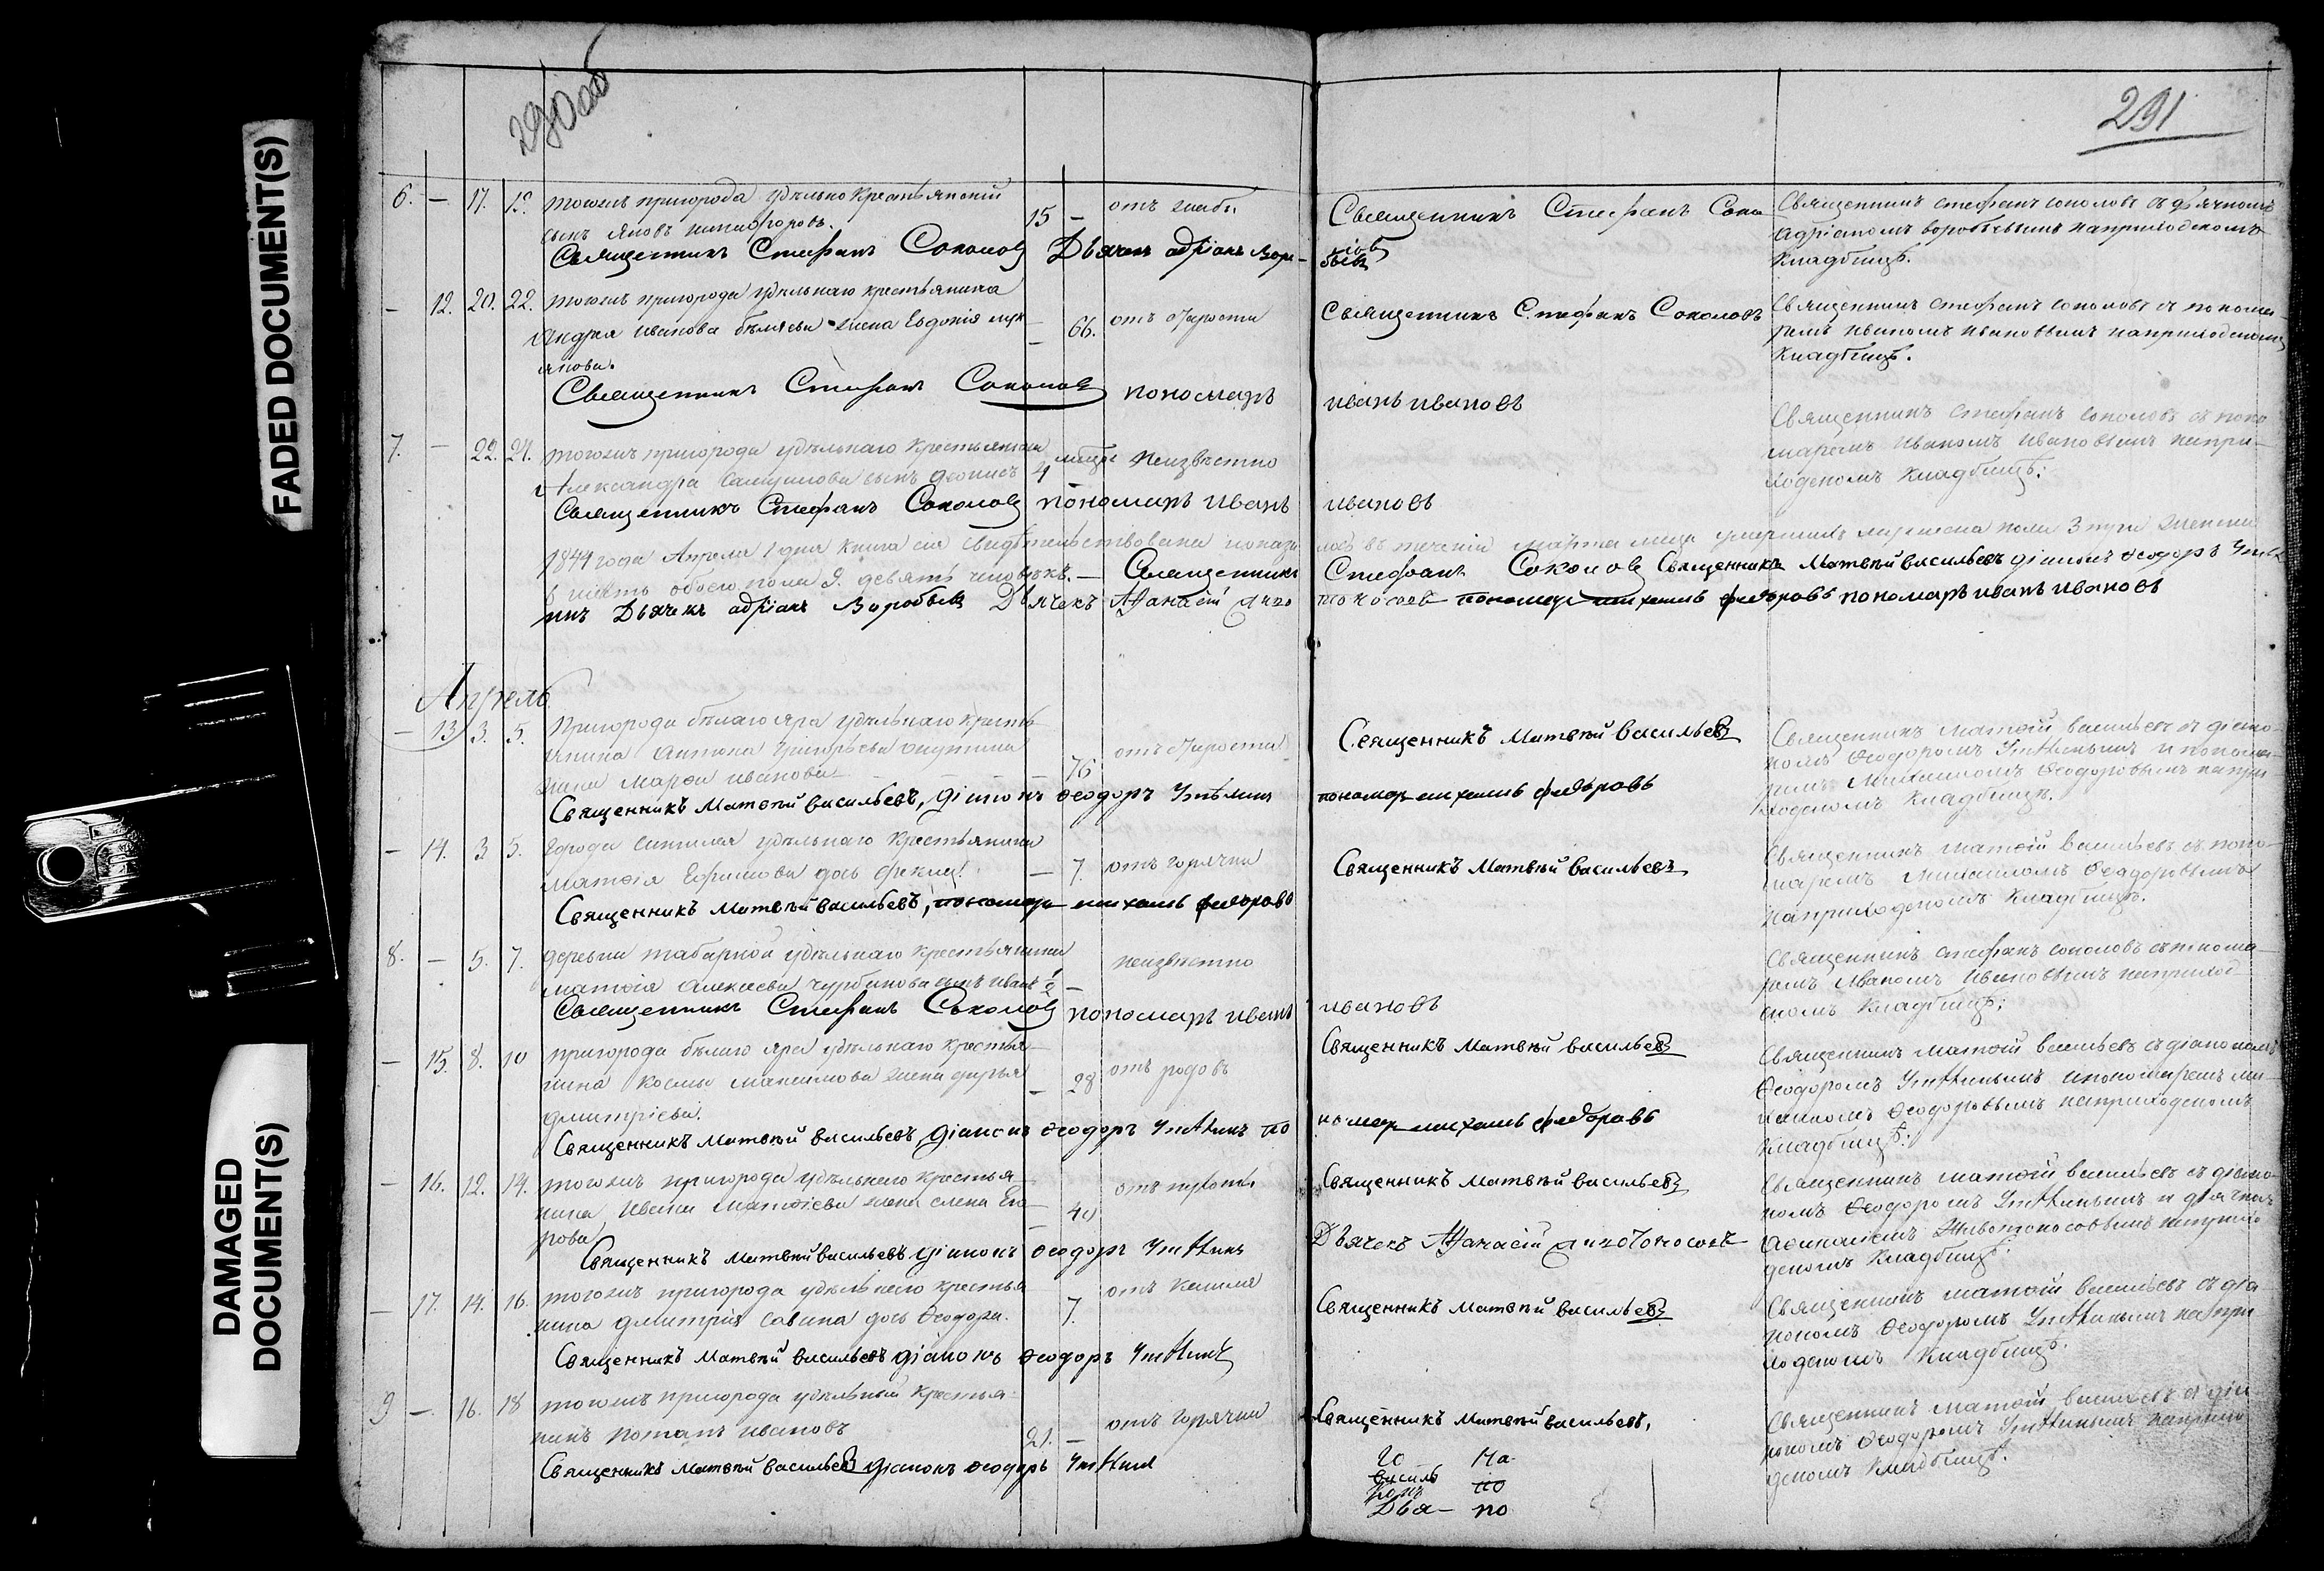 FADED DOCUMENT(S)
DAMAGED
DOCUMENT(S)
290об
291
6. — 17. 19. тогожъ пригорода удѣльно крестьянскій
сынъ Яковъ Никифоровъ. 15 —
Священникъ Стефанъ Соколовъ Дьячекъ Адріанъ Воро-
Священникъ Стефанъ Соко
ловъ
бьевъ
Священникъ Стефанъ Соколовъ съ дьячкомъ
Адріаномъ Воробьевымъ наприходскомъ
Кладбищѣ.
— 12. 20. 22. тогожъ пригорода удѣльнаго крестьянина
Андрея Иванова жена Евдокія Лук — 66. отъ старости
янова.
Священникъ Стефанъ Соколовъ пономарь
Священникъ Стефанъ Соколовъ
иванъ ивановъ
Священникъ Стефанъ Соколовъ съ понома-
ремъ Иваномъ Ивановымъ наприходскомъ
Кладбищѣ.
7. — 22. 24. тогожъ пригорода удѣльнаго крестьянина
Александра сынъ Деонисъ 4 неизвѣстно
Священникъ Стефанъ Соколовъ пономарь иванъ
ивановъ
Священникъ Стефанъ Соколовъ съ поно
маремъ Иваномъ Ивановымъ напри-
ходскомъ Кладбищѣ:
1844 года Апреля 1 дня книга сія свидѣтельствована и оказа
лось въ теченіи марта мца умершихъ мужеска пола 3 три женска
6 шесть обоего пола 9. девять человѣкъ. — Священникъ
Стефанъ Соколовъ Священникъ Матвѣй Васильевъ діаконъ Ѳеодоръ
инъ Дьячекъ Адріанъ Воробьевъ Дьячекъ Афанасій
пономарь михаилъ федоровъ пономарь иванъ ивановъ
Апрель
— 13 3. 5. Пригорода бѣлаго яра удѣльнаго кресть-
янина Антона Григорьева
жена Марѳа Иванова — 76 отъ старости
Священникъ Матвѣй Васильевъ, діаконъ Ѳеодоръ
Священникъ Матвѣй Васильевъ
пономарь михаилъ федоровъ
Священникъ Матѳій Васильевъ съ діако-
номъ Ѳеодоромъ и понома-
ремъ Михаиломъ Ѳеодоровымъ напри-
ходскомъ Кладбищѣ.
— 14. 3 5. удѣльнаго крестьянина
Матѳія Ефимова дочь — 7. отъ горячки
Священникъ Матвѣй Васильевъ, пономарь михаилъ федоровъ
Священникъ Матвѣй Васильевъ
Священникъ Матѳій Васильевъ съ поно-
маремъ Михаиломъ Ѳеодоровымъ
наприходскомъ Кладбищѣ.
8. — 5. 7. деревни удѣльнаго крестьянина
Матѳія Алексеева сынъ Иванъ — неизвѣстно
Священникъ Стефанъ Соколовъ пономарь иванъ
ивановъ
Священникъ Стефанъ Соколовъ съ понома-
ремъ Иваномъ Ивановымъ наприход-
скомъ Кладбищѣ:
— 15. 8. 10 пригорода бѣлаго яра удѣльнаго крестья-
нина Космы Максимова жена Дарья — 28 отъ родовъ
Дмитріева.
Священникъ Матвѣй Васильевъ, діаконъ Ѳеодоръ по
Священникъ Матвѣй Васильевъ
номарь михаилъ федоровъ
Священникъ Матѳій Васильевъ съ діакономъ
Ѳеодоромъ и пономаремъ Ми-
хаиломъ Ѳеодоровымъ наприходскомъ
Кладбищѣ:
— 16. 12. 14. тогожъ пригорода удѣльнаго крестья-
нина Ивана Матѳіева жена Елена Его — 40
рова
Священникъ Матвѣй Васильевъ діаконъ Ѳеодоръ
Священникъ Матвѣй Васильевъ
Дьячекъ Афанасій
Священникъ Матѳій Васильевъ съ діако-
номъ Ѳеодоромъ и дьячкомъ
Кладбищѣ:
— 17. 14. 16. тогожъ пригорода удѣльнаго крестья
нина Дмитрія Савина дочь Ѳеодора. 7. отъ кашля
Священникъ Матвѣй Васильевъ діаконъ Ѳеодоръ
Священникъ Матвѣй Васильевъ
Священникъ Матѳій Васильевъ съ діа
кономъ Ѳеодоромъ напри
ходскомъ Кладбищѣ.
9 — 16. 18 тогожъ пригорода удѣльный крестья-
нинъ Потапъ Ивановъ 21. — отъ горячки
Священникъ Матвѣй Васильевъ діаконъ Ѳеодоръ
Священникъ Матвѣй Васильевъ,
Священникъ Матѳій Васильевъ съ діа-
кономъ Ѳеодоромъ наприхо
дскомъ Кладбищѣ.
Го На
василь по
Дья- по